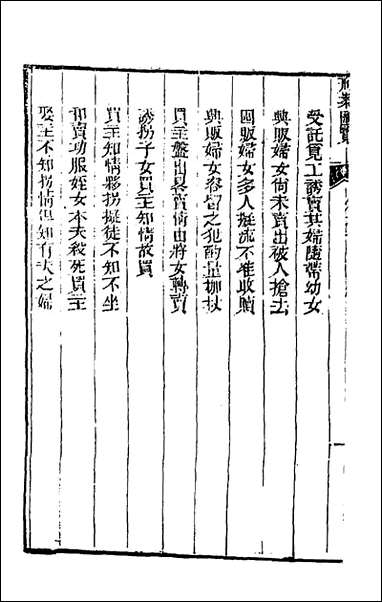 受託覓工誘賣其婦隨帶幼女
興販婦女尚未賣出被人搶去
因販婦女多人擬流不准收贖
興販婦女容留之犯酌量枷杖
買主盤出畧賣情由將女轉賣
誘拐子女買主知情故買
買主知情夥拐擬徒不知不坐
和賣功服姪女本夫殺死買主
娶主不知拐情但知有夫之婦